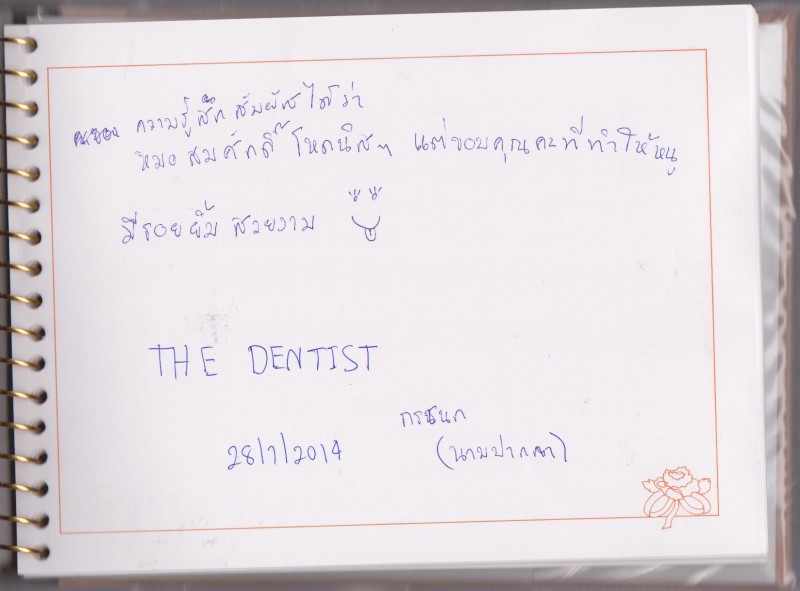 ความรู้สึก สัมผัสได้ว่า
หมอสมศักดิ์ โหดนิสๆ แต่ขอบคุณคะที่ทำให้หนู
มีรอยยิ้มสวยงาม
THE DENTIST
กรชนก
28/1/2014
(นามปากกา)